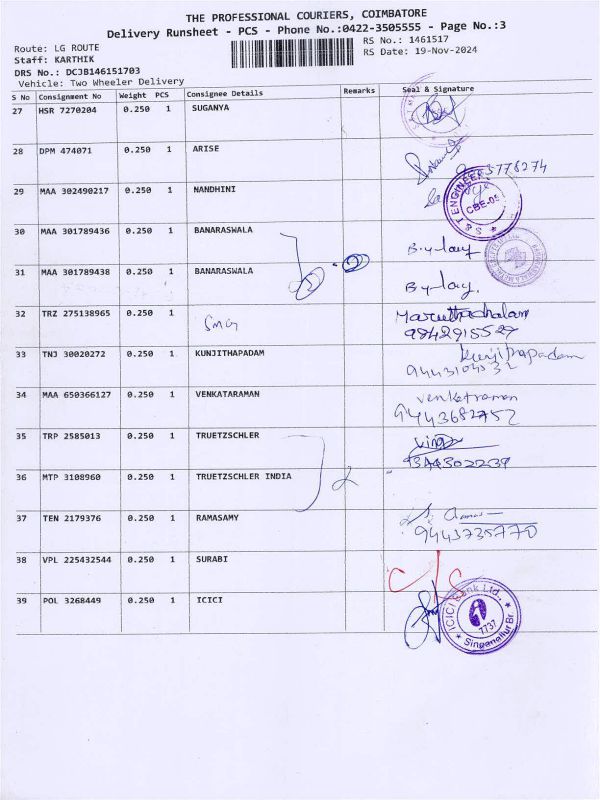 THE PROFESSIONAL COURIERS, COIMBATORE
Delivery Runsheet - PCS - Phone No.:0422-3505555 - Page No.:3
Route: LG ROUTE RS No.: 1461517
Staff: KARTHIK RS Date: 19-Nov-2024
DRS No.: DCJB146151703
Vehicle: Two Wheeler Delivery
S No Consignment No Weight PCS Consignee Details Remarks Seal & Signature
27 HSR 7270204 0.250 1 SUGANYA
28 DPM 474071 0.250 1 ARISE
29 MAA 302490217 0.250 1 NANDHINI
S & T ENGINEERS
CBE-05
30 MAA 301789436 0.250 1 BANARASWALA
31 MAA 301789438 0.250 1 BANARASWALA
32 TRZ 275138965 0.250 1 Maruthachalam
9842915529
33 TNJ 30020272 0.250 1 KUNJITHAPADAM Kunjithapadam
34 MAA 650366127 0.250 1 VENKATARAMAN Venketraman
9443682752
35 TRP 2585013 0.250 1 TRUETZSCHLER
9344302239
36 MTP 3108960 0.250 1 TRUETZSCHLER INDIA 2
37 TEN 2179376 0.250 1 RAMASAMY
9443735770
38 VPL 225432544 0.250 1 SURABI
C/S
39 POL 3268449 0.250 1 ICICI
ICICI Bank Ltd.,
7737
Singanallur Br.